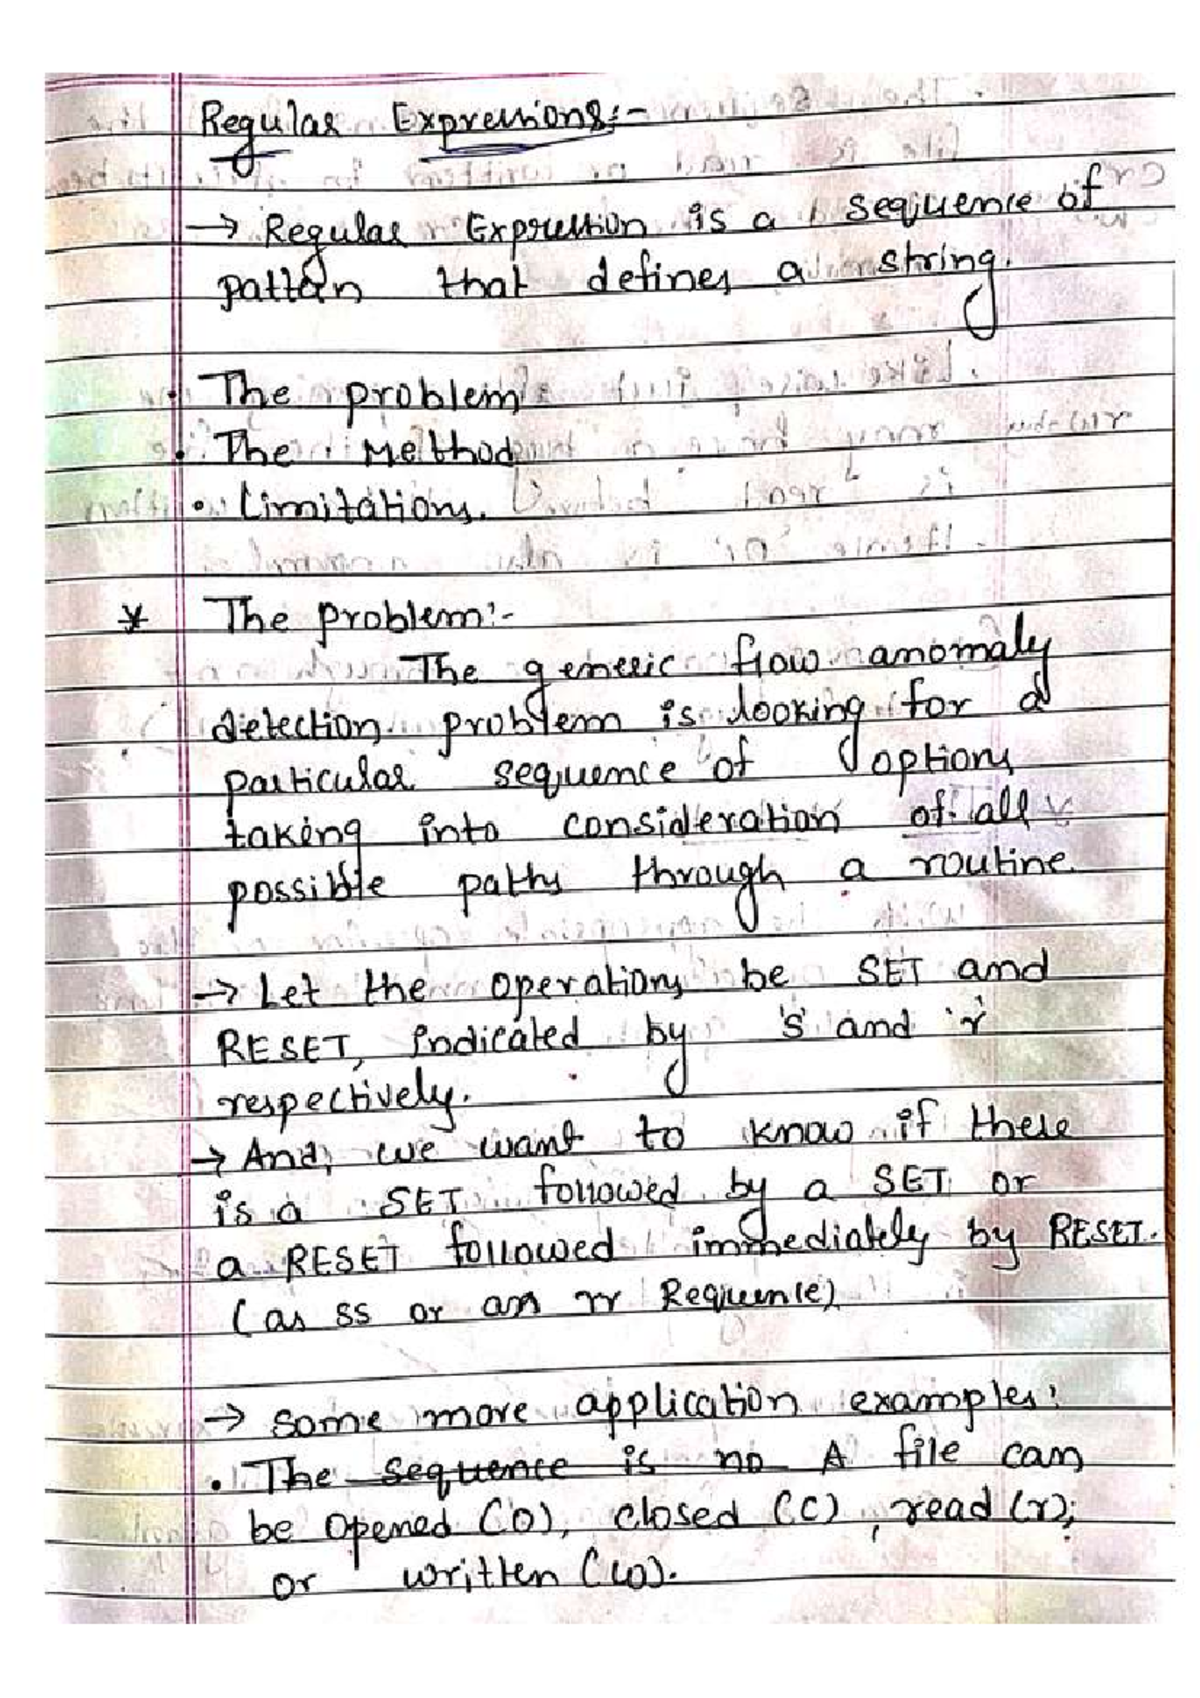 Regular Expressions:-
→ Regular Expression is a sequence of
pattern that defines a string.
• The problem
• The Method
• Limitations.
* The problem:-
The generic flow anomaly
detection problem is looking for a
particular sequence of options
taking into consideration of all
possible paths through a routine.
→ Let the operations be SET and
RESET, indicated by 's' and 'r'
respectively.
→ And, we want to know if there
is a SET followed by a SET or
a RESET followed immediately by RESET.
(as ss or an rr Requence)
→ some more application examples:
• The sequence is no A file can
be opened (o), closed (c), read (r),
or written (w).